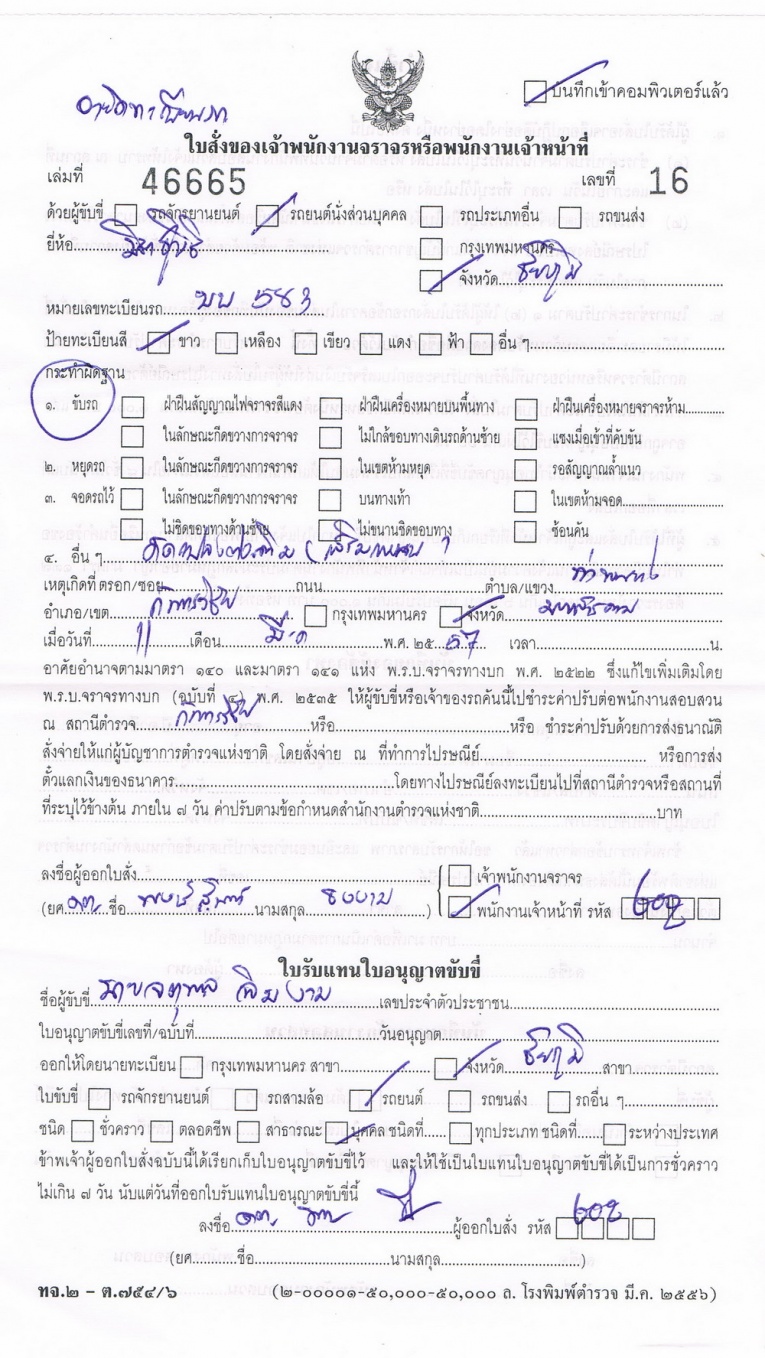 บันทึกเข้าคอมพิวเตอร์แล้ว
ใบสั่งของเจ้าพนักงานจราจรหรือพนักงานเจ้าหน้าที่
เล่มที่ 46665 เลขที่ 16
ด้วยผู้ขับขี่ รถจักรยานยนต์ รถยนต์นั่งส่วนบุคคล รถประเภทอื่น รถขนส่ง
ยี่ห้อ กรุงเทพมหานคร
จังหวัด ชัยภูมิ
หมายเลขทะเบียนรถ บบ 583
ป้ายทะเบียนสี ขาว เหลือง เขียว แดง ฟ้า อื่น ๆ
กระทำผิดฐาน
๑. ขับรถ ฝ่าฝืนสัญญาณไฟจราจรสีแดง ฝ่าฝืนเครื่องหมายบนพื้นทาง ฝ่าฝืนเครื่องหมายจราจรห้าม
ในลักษณะกีดขวางการจราจร ไม่ใกล้ขอบทางเดินรถด้านซ้าย แซงเมื่อเข้าที่คับขัน
๒. หยุดรถ ในลักษณะกีดขวางการจราจร ในเขตห้ามหยุด รอสัญญาณล้ำแนว
๓. จอดรถไว้ ในลักษณะกีดขวางการจราจร บนทางเท้า ในเขตห้ามจอด
ไม่ชิดขอบทางด้านซ้าย ไม่ขนานชิดขอบทาง ซ้อนคัน
๔. อื่น ๆ
เหตุเกิดที่ ตรอก/ซอย ถนน ตำบล/แขวง
อำเภอ/เขต กรุงเทพมหานคร จังหวัด มหาสารคาม
เมื่อวันที่ 11 เดือน มี.ค พ.ศ. ๒๕ 57 เวลา น.
อาศัยอำนาจตามมาตรา ๑๔๐ และมาตรา ๑๔๑ แห่ง พ.ร.บ.จราจรทางบก พ.ศ. ๒๕๒๒ ซึ่งแก้ไขเพิ่มเติมโดย
พ.ร.บ.จราจรทางบก (ฉบับที่ ๔) พ.ศ. ๒๕๓๕ ให้ผู้ขับขี่หรือเจ้าของรถคันนี้ไปชำระค่าปรับต่อพนักงานสอบสวน
ณ สถานีตำรวจ หรือ หรือ ชำระค่าปรับด้วยการส่งธนาณัติ
สั่งจ่ายให้แก่ผู้บัญชาการตำรวจแห่งชาติ โดยสั่งจ่าย ณ ที่ทำการไปรษณีย์ หรือการส่ง
ตั๋วแลกเงินของธนาคาร โดยทางไปรษณีย์ลงทะเบียนไปที่สถานีตำรวจหรือสถานที่
ที่ระบุไว้ข้างต้น ภายใน ๗ วัน ค่าปรับตามข้อกำหนดสำนักงานตำรวจแห่งชาติ บาท
ลงชื่อผู้ออกใบสั่ง เจ้าพนักงานจราจร
(ยศ ชื่อ นามสกุล ) พนักงานเจ้าหน้าที่ รหัส
ใบรับแทนใบอนุญาตขับขี่
ชื่อผู้ขับขี่ เลขประจำตัวประชาชน
ใบอนุญาตขับขี่เลขที่/ฉบับที่ วันอนุญาต
ออกให้โดยนายทะเบียน กรุงเทพมหานคร สาขา จังหวัด ชัยภูมิ สาขา
ใบขับขี่ รถจักรยานยนต์ รถสามล้อ รถยนต์ รถขนส่ง รถอื่น ๆ
ชนิด ชั่วคราว ตลอดชีพ สาธารณะ บุคคล ชนิดที่ ทุกประเภท ชนิดที่ ระหว่างประเทศ
ข้าพเจ้าผู้ออกใบสั่งฉบับนี้ได้เรียกเก็บใบอนุญาตขับขี่ไว้ และให้ใช้เป็นใบแทนใบอนุญาตขับขี่ได้เป็นการชั่วคราว
ไม่เกิน ๗ วัน นับแต่วันที่ออกใบรับแทนใบอนุญาตขับขี่นี้
ลงชื่อ ผู้ออกใบสั่ง รหัส
(ยศ ชื่อ นามสกุล )
ทจ.๒ - ต.๗๕๔/๖ (๒-๐๐๐๐๑-๕๐,๐๐๐-๕๐,๐๐๐ ล. โรงพิมพ์ตำรวจ มี.ค. ๒๕๕๖)